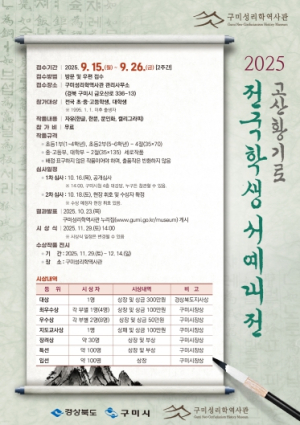 구미성리학역사관
2025
고산황기로
전국학생서예대전
접수기간 : 2025. 9. 15.(월) ~ 9. 26.(금) [2주간]
접수방법 : 방문 및 우편 접수
접수장소 : 구미성리학역사관 관리사무소
(경북 구미시 금오산로 336-13)
참가대상 : 전국 초·중·고등학생, 대학생
작품내용 : 자유(한글, 한문, 문인화, 캘리그라피)
참 가 비 : 무료
작품규격
심사일정
2025. 10. 23.(목)
구미성리학역사관 누리집(www.gumi.go.kr/museum) 게시
시 상 식 : 2025. 11. 29.(토) 14:00
수상작품 전시
기 간 : 2025. 11. 29.(토) ~ 12. 14.(일)
장 소 : 구미성리학역사관
시상내역
시 상 자 시상내역 비 고
대상 1명 상장 및 상금 300만원 경상북도지사상
최우수상 각 부별 1명(4명) 상장 및 상금 100만원 구미시장상
우수상 상장 및 상금 50만원 구미시장상
지도교사상 1명 상패 및 상금 100만원 구미시장상
장려상 약 30명 상장 및 부상 구미시장상
특선 약 100명 상장 및 부상 구미시장상
입선 약 100명 상장 구미시장상
경상북도 구미시 구미성리학역사관